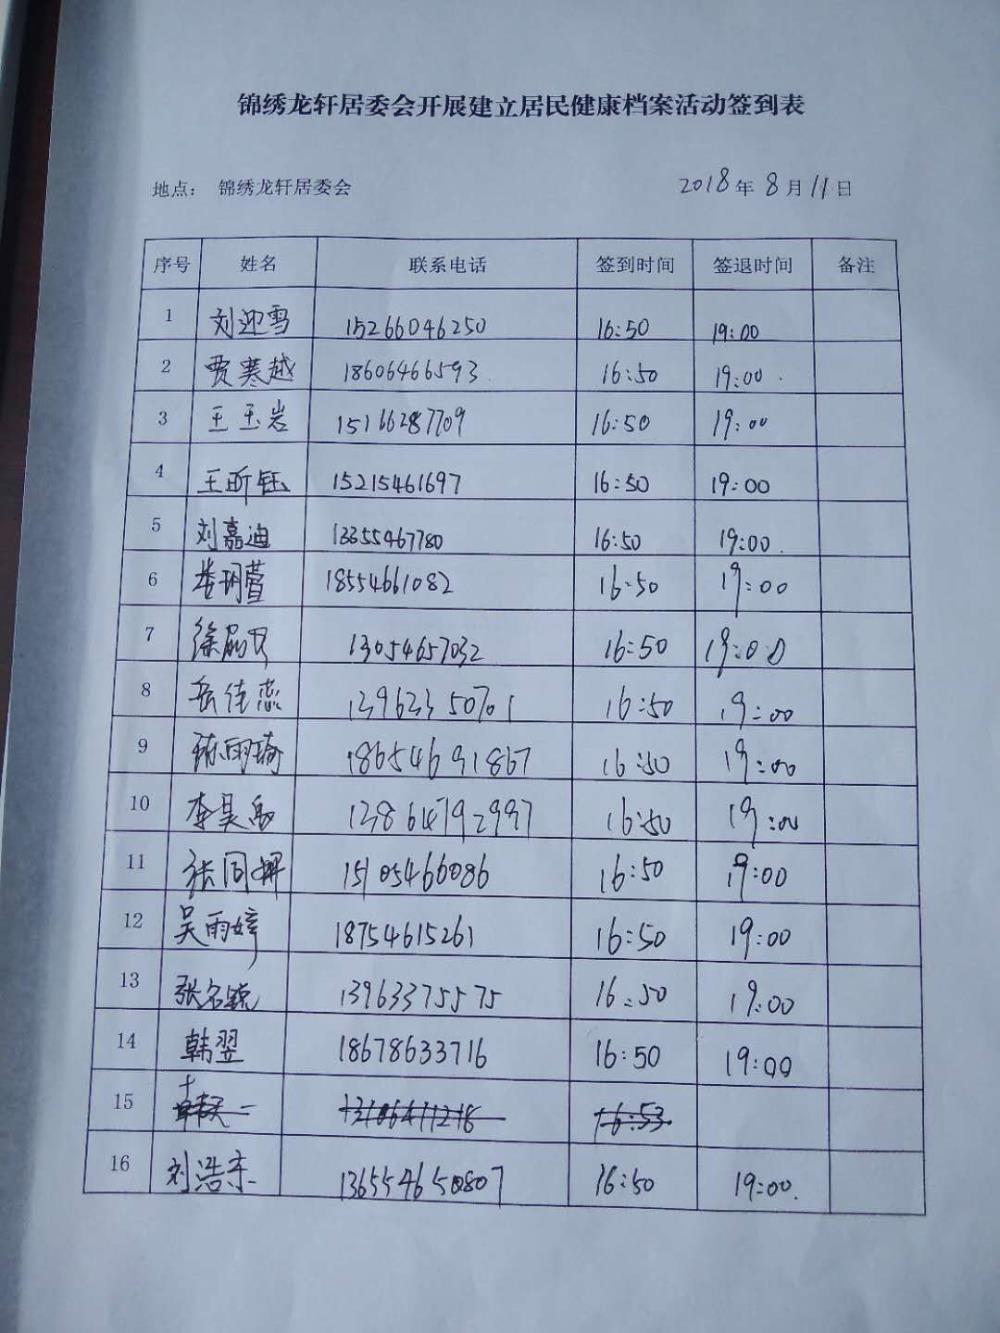 锦绣龙轩居委会开展建立居民健康档案活动签到表
地点： 锦绣龙轩居委会 2018年8月11日
序号 姓名 联系电话 签到时间 签退时间 备注
1 刘迎雪 15266046250 16:50 19:00
2 贾寒越 18606466593 16:50 19:00
3 王玉岩 15166287709 16:50 19:00
4 王昕钰 15215461697 16:50 19:00
5 刘嘉迪 13355467780 16:50 19:00
6 娄玥萱 18554661082 16:50 19:00
7 13054657032 16:50 19:00
8 岳佳恋 16:50 19:00
9 18654691867 16:50 19:00
10 李昊禹 16:50 19:00
11 张同辉 15105466086 16:50 19:00
12 吴雨婷 18754615261 16:50 19:00
13 张名毓 13963375575 16:50 19:00
14 韩翌 18678633716 16:50 19:00
15 16:53
16 刘浩东 16:50 19:00